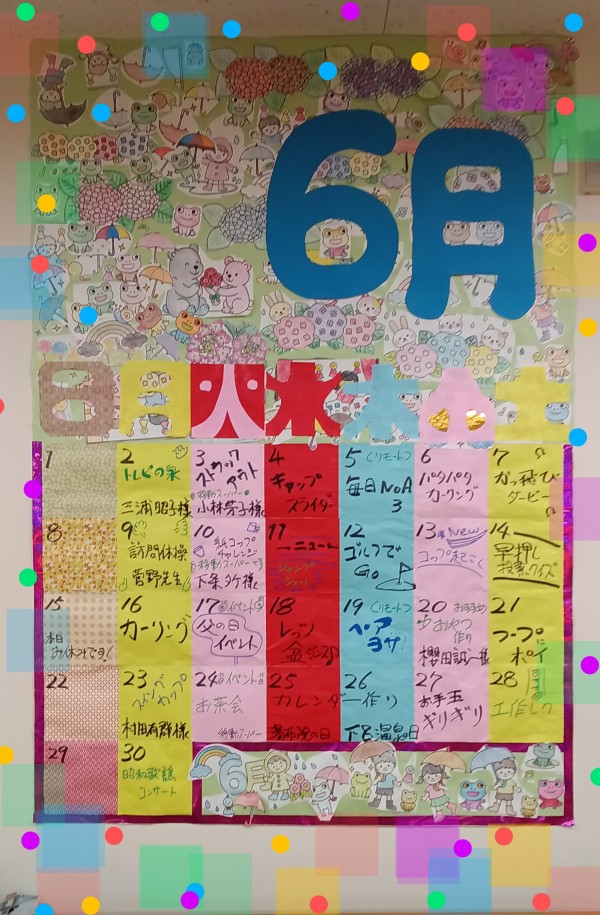 6月
日 月 火 水 木 金 土
1
2
トレビの泉
三浦昭子様
3
ストラックアウト
移動スーパー
小林芳子様
4
キャップ
スライダー
5
くリモートつ
毎日NOA
3
6
パタパタ
カーリング
7
かっ飛び
ダービー
8
9
訪問体操
菅野先生
10
紙コップ
チャレンジ
移動スーパー
下条
様
11
ニュー
ジャンプ
シュート
12
ゴルフで
GO
13
NEW
コップ
14
早押し
クイズ
15
本日
お休みです!
16
カーリング
17
イベント
父の日
イベント
18
レッツ
19
くリモートつ
ヘアヨガ
20
おすすめ
おやつ
作り
櫻田誠一様
21
フープに
ポイ
22
23
スイングカップ
村田有群様
24
イベント
お茶会
移動スーパー
25
カレンダー作り
26
下呂温泉の日
27
お手玉
ギリギリ
28
工作レク
29
30
昭和歌謡
コンサート
6月